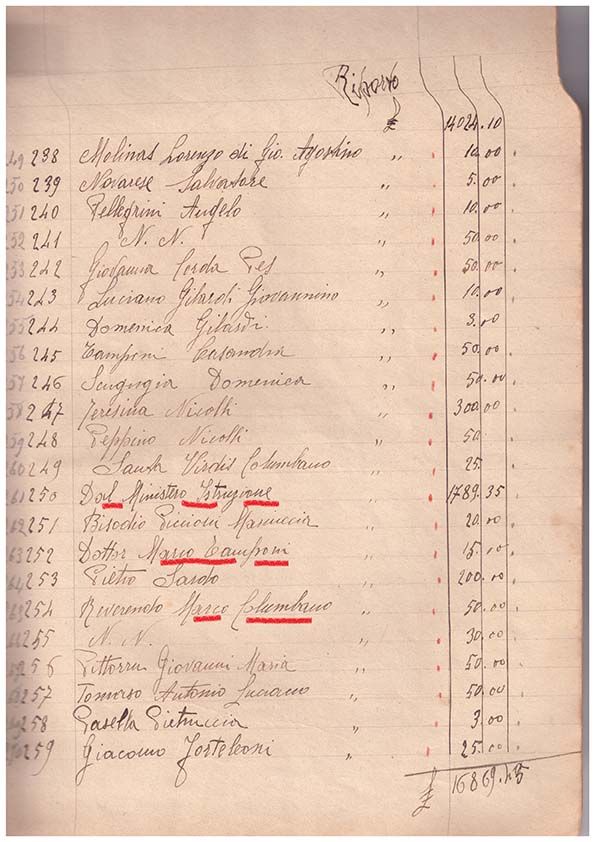 Riporto
£ 14024.10
238 Molinas Lorenzo di Gio. Agostino ,, 10.00
239 Novarese Salvatore ,, 5.00
240 Pellegrini Angelo ,, 10.00
241 N. N. ,, 50.00
242 Giovanna Cerda Pes ,, 50.00
243 Luciano Gilardi Giovannino ,, 10.00
244 Domenica Gilardi ,, 3.00
245 Tamponi Casandra ,, 50.00
246 Scugugia Domenica ,, 50.00
247 Teresina Nicolli ,, 300.00
248 Peppino Nicolli ,, 50.
249 Santa Virdis Columbano ,, 25.
250 Dal Ministero Istruzione ,, 1789.35
251 Bisodio Piccioni Mariuccia ,, 20.00
252 Dottor Mario Tamponi ,, 15.00
253 Pietro Sardo ,, 200.00
254 Reverendo Marco Columbano ,, 50.00
255 N. N. ,, 30.00
256 Pittorru Giovanni Maria ,, 50.00
257 Tomaso Antonio Luciano ,, 50.00
258 Pasella Pietruccia ,, 3.00
259 Giacomo Forteleoni ,, 25.00
£ 16869.45